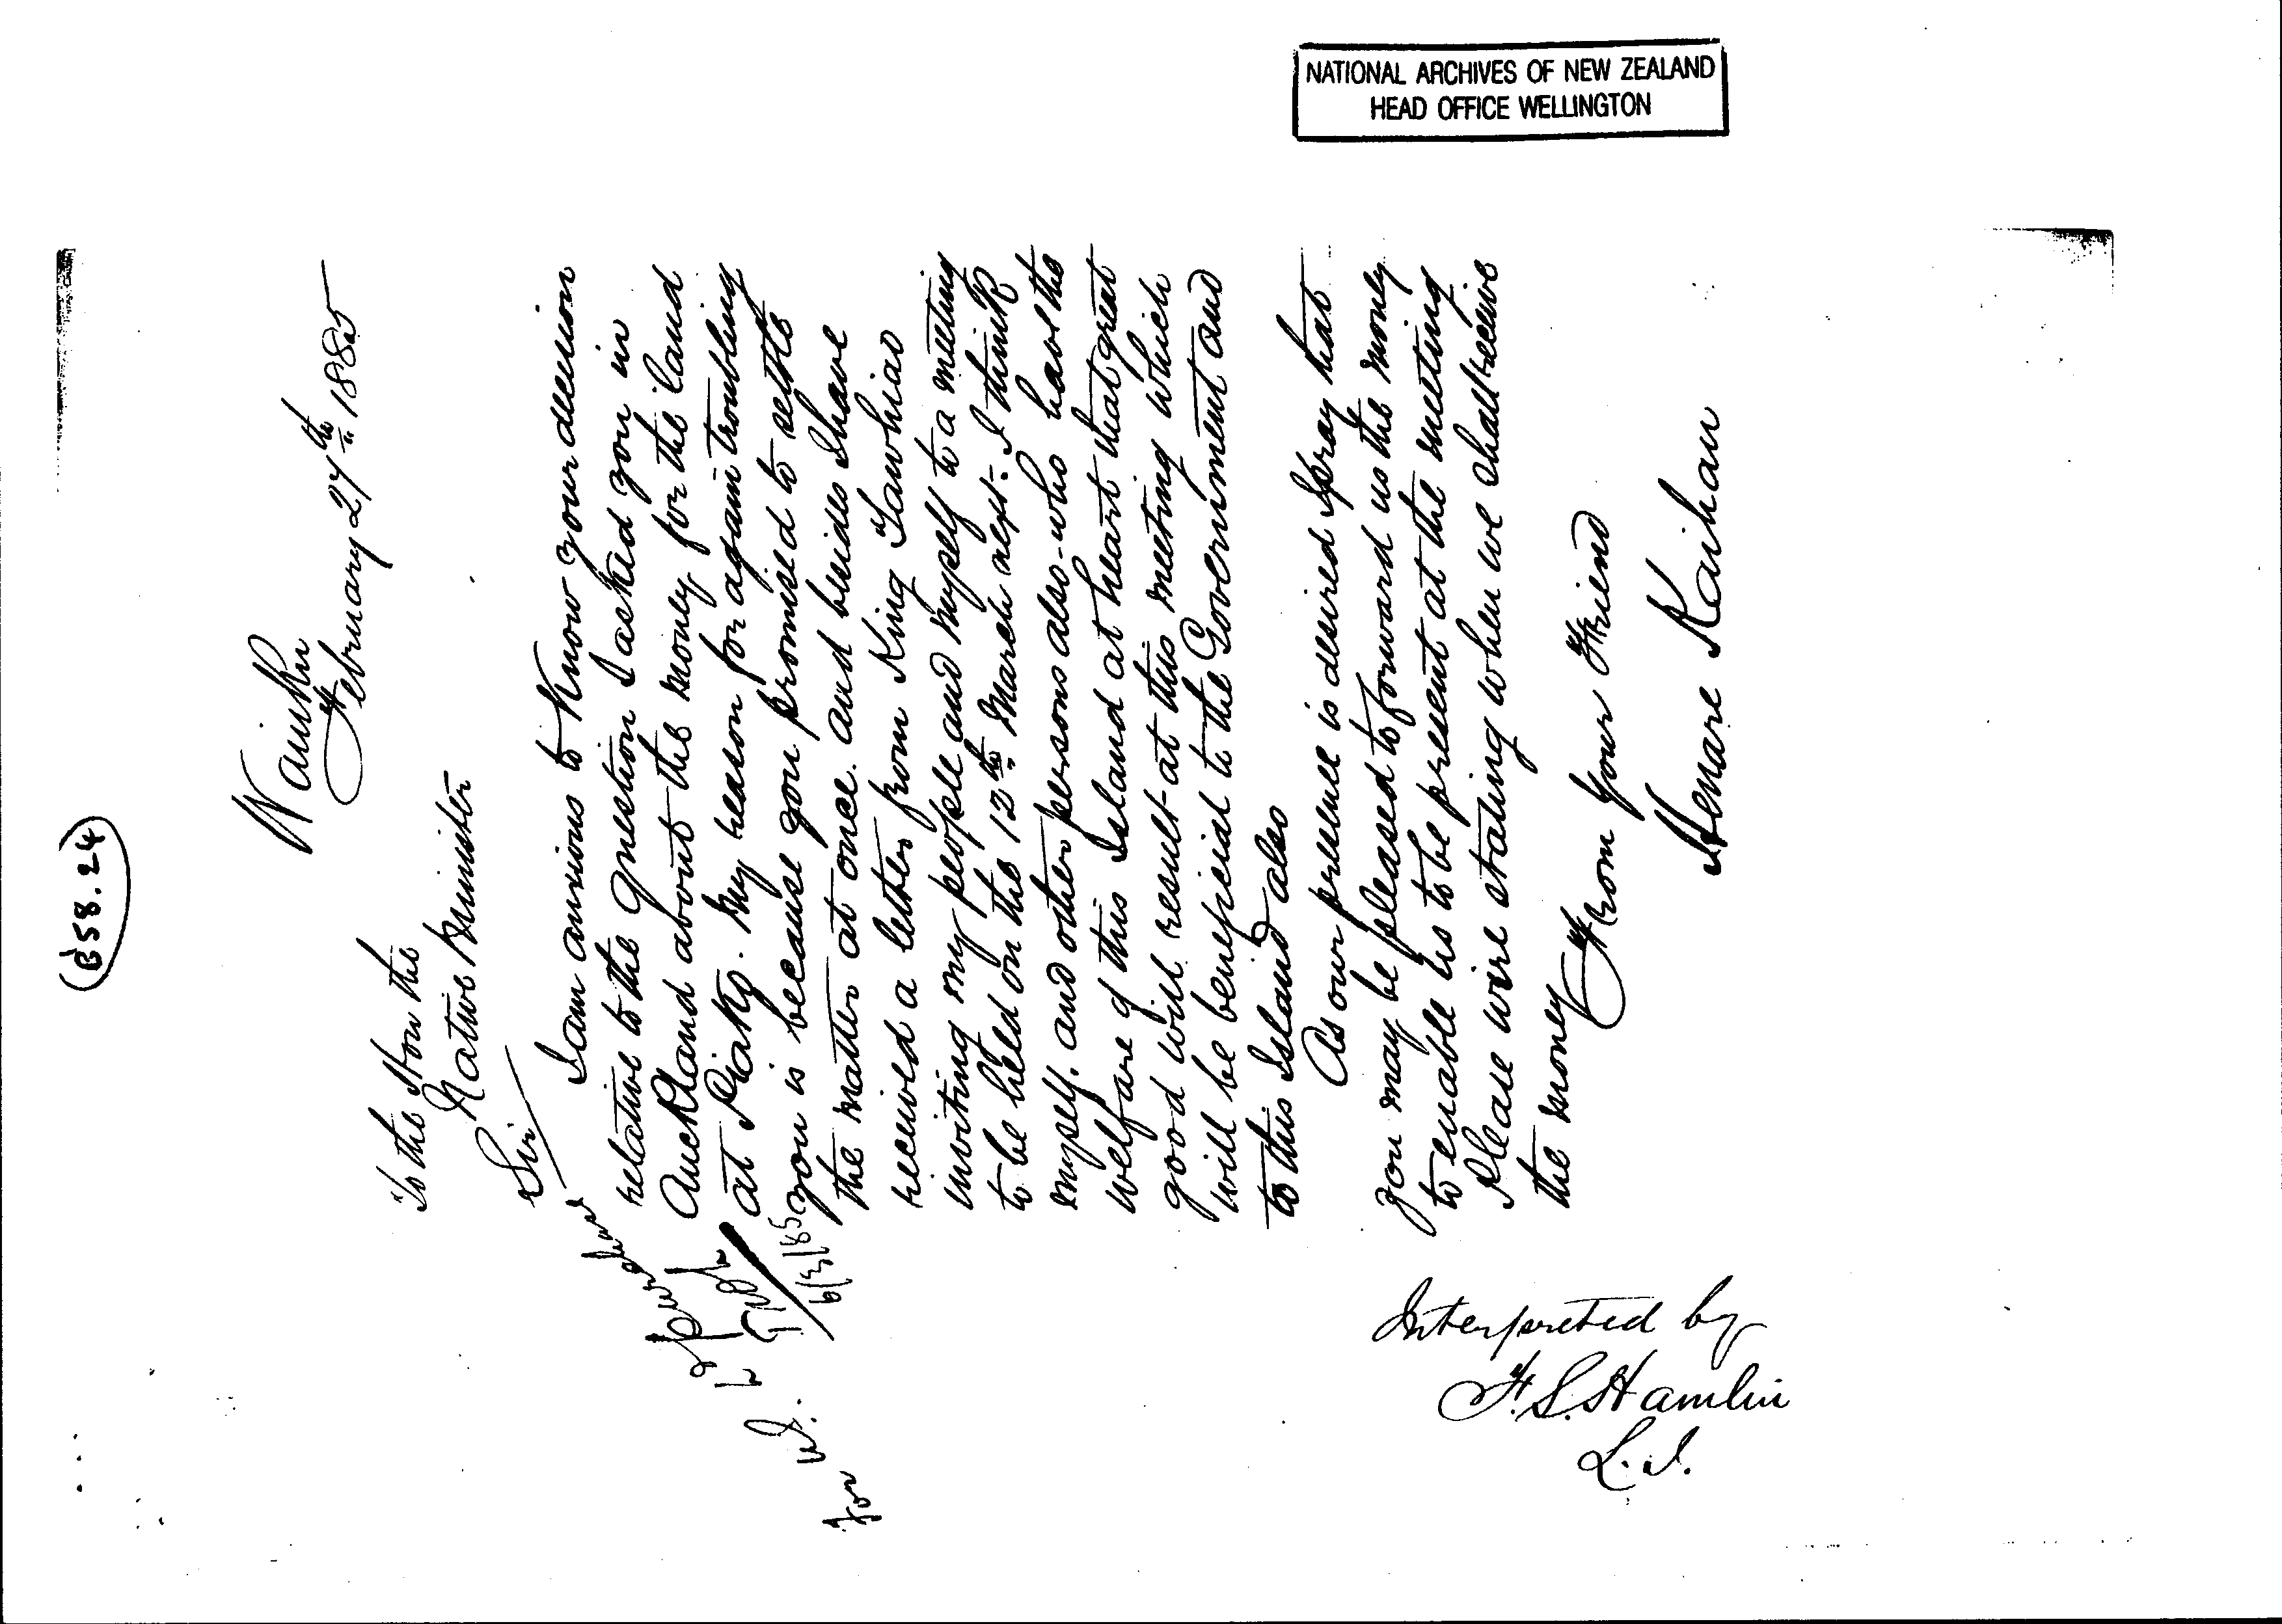 NATIONAL ARCHIVES OF NEW ZEALAND
HEAD OFFICE WELLINGTON
(B58.24)
Waiuku
February 27th 1885
To the Hon the
Native Minister
Sir/
I am anxious to know your decision
relative to the question I asked you in
Auckland about the money for the land
at Piako. My reason for again troubling
you is because you promised to settle
the matter at once. and besides I have
received a letter from King Tawhiao
inviting my people and myself to a meeting
to be held on the 12th March next. I think
myself. and other persons also who have the
welfare of this Island at heart that great
good will result at this meeting which
will be beneficial to the Government and
to this Island also
As our presence is desired I pray that
you may be pleased to forward us the money
to enable us to be present at the meeting
Please wire stating when we shall receive
the money
From your Friend
Henare Kaihau
6/3/85
Interpreted by
F. S. Hamlin
L. I.